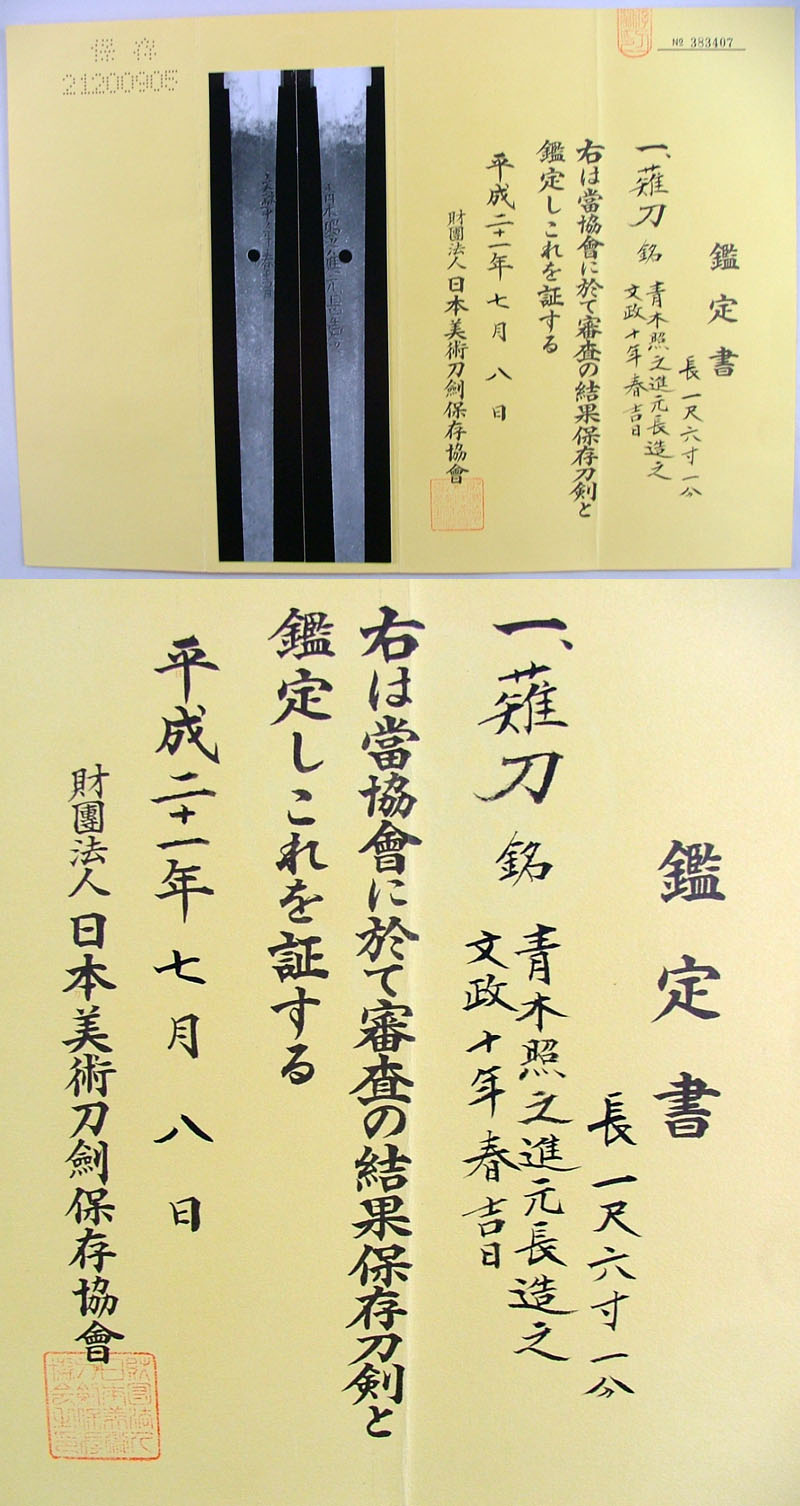 保存
21200905
№ 383407
鑑定書
長 一尺六寸一分
一、薙刀 銘 青木照之進元長造之
文政十年春吉日
右は當協會に於て審査の結果保存刀剣と
鑑定しこれを証する
平成二十一年七月八日
財團法人日本美術刀劍保存協會
鑑定書
長 一尺六寸一分
一、薙刀 銘 青木照之進元長造之
文政十年春吉日
右は當協會に於て審査の結果保存刀剣と
鑑定しこれを証する
平成二十一年七月八日
財團法人日本美術刀劍保存協會